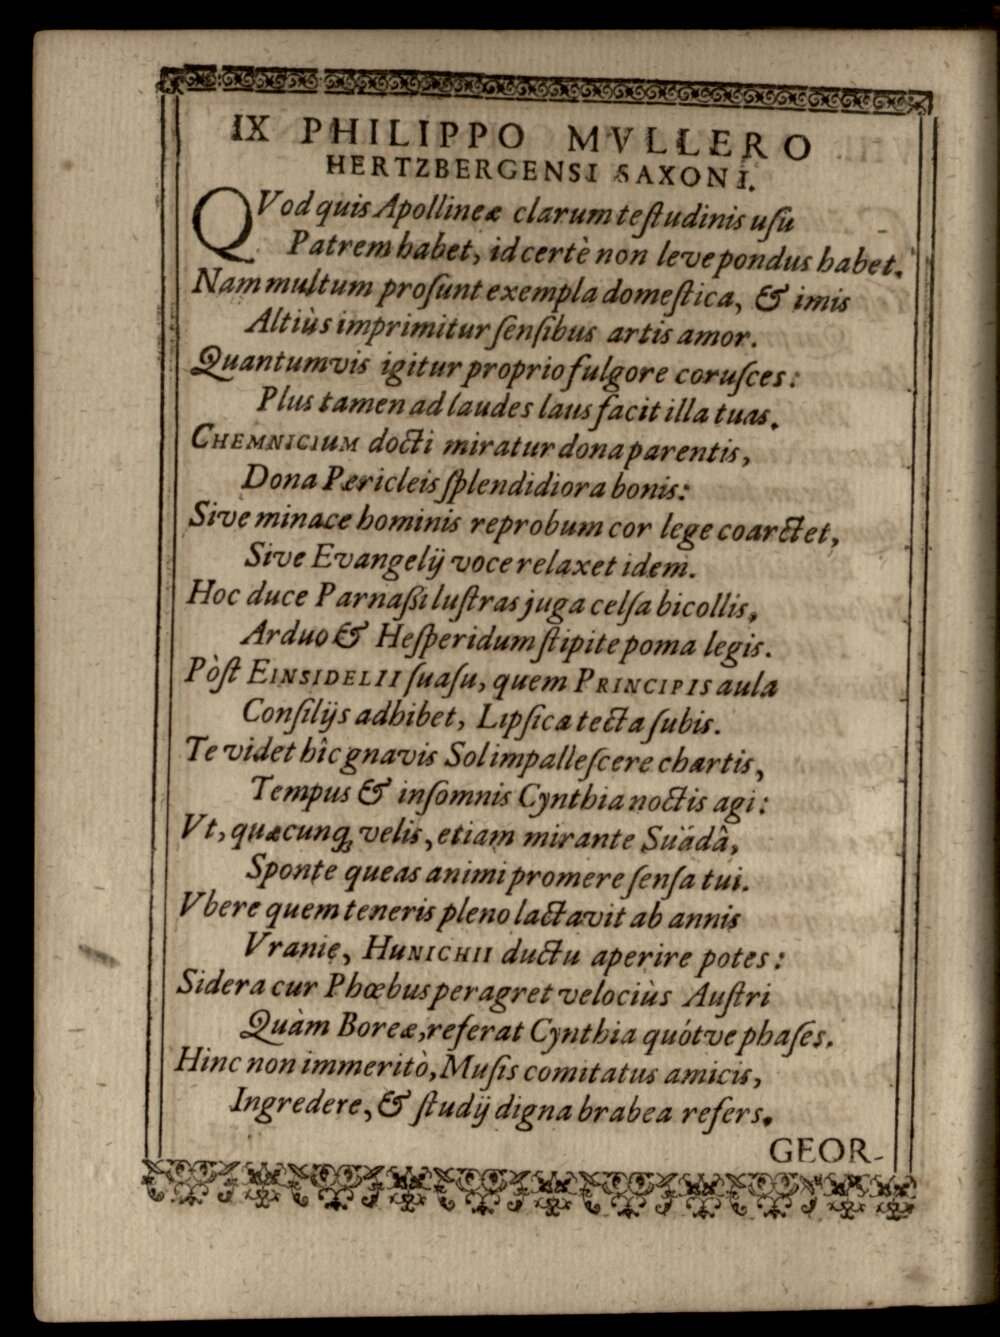 IX PHILIPPO MVLLERO
HERTZBERGENSI SAXONI.
QVod quis Apollineæ clarum teſtudinis uſu
Patrem habet, id certè non leve pondus habet.
Nam multum proſunt exempla domeſtica, & imis
Altiùs imprimitur ſenſibus artis amor.
Quantumvis igitur proprio fulgore coruſces:
Plus tamen ad laudes laus facit illa tuas.
CHEMNICIUM docti miratur dona parentis,
Dona Pæricleis ſplendidiora bonis:
Sive minace hominis reprobum cor lege coarctet,
Sive Evangelij voce relaxet idem.
Hoc duce Parnaßi luſtras juga celſa bicollis,
Arduo & Heſperidum ſtipite poma legis.
Pòſt EINSIDELII ſuaſu, quem PRINCIPIS aula
Conſilijs adhibet, Lipſica tecta ſubis.
Te videt hîc gnavis Sol impalleſcere chartis,
Tempus & inſomnis Cynthia noctis agi:
Vt, quæcunq; velis, etiam mirante Suädâ,
Sponte queas animi promere ſenſa tui.
Vbere quem teneris pleno lactavit ab annis
Vranię, HUNICHII ductu aperire potes:
Sidera cur Phœbus peragret velociùs Auſtri
Quàm Boreæ, referat Cynthia quótve phaſes.
Hinc non immeritò, Muſis comitatus amicis,
Ingredere, & ſtudij digna brabea refers.
GEOR-